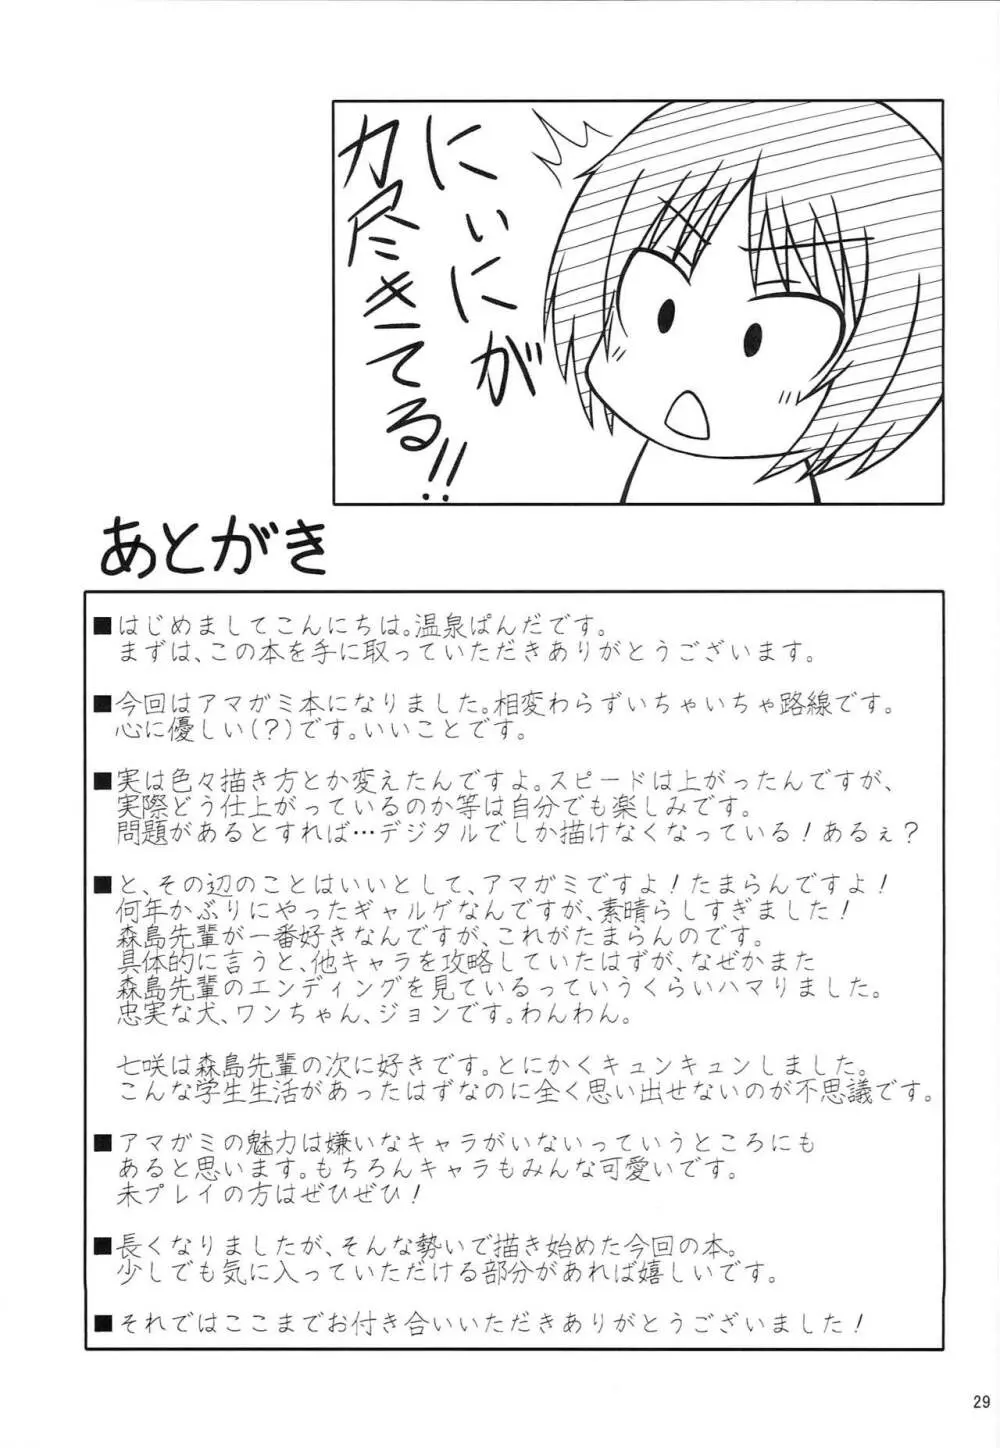 にぃにが
力尽きてる!!
あとがき
■はじめましてこんにちは。温泉ぱんだです。
まずは、この本を手に取っていただきありがとうございます。
■今回はアマガミ本になりました。相変わらずいちゃいちゃ路線です。
心に優しい(?)です。いいことです。
■実は色々描き方とか変えたんですよ。スピードは上がったんですが、
実際どう仕上がっているのか等は自分でも楽しみです。
問題があるとすれば…デジタルでしか描けなくなっている!あるぇ?
■と、その辺のことはいいとして、アマガミですよ!たまらんですよ!
何年かぶりにやったギャルゲなんですが、素晴らしすぎました!
森島先輩が一番好きなんですが、これがたまらんのです。
具体的に言うと、他キャラを攻略していたはずが、なぜかまた
森島先輩のエンディングを見ているっていうくらいハマりました。
忠実な犬、ワンちゃん、ジョンです。わんわん。
七咲は森島先輩の次に好きです。とにかくキュンキュンしました。
こんな学生生活があったはずなのに全く思い出せないのが不思議です。
■アマガミの魅力は嫌いなキャラがいないっていうところにも
あると思います。もちろんキャラもみんな可愛いです。
未プレイの方はぜひぜひ!
■長くなりましたが、そんな勢いで描き始めた今回の本。
少しでも気に入っていただける部分があれば嬉しいです。
■それではここまでお付き合いいただきありがとうございました!
29